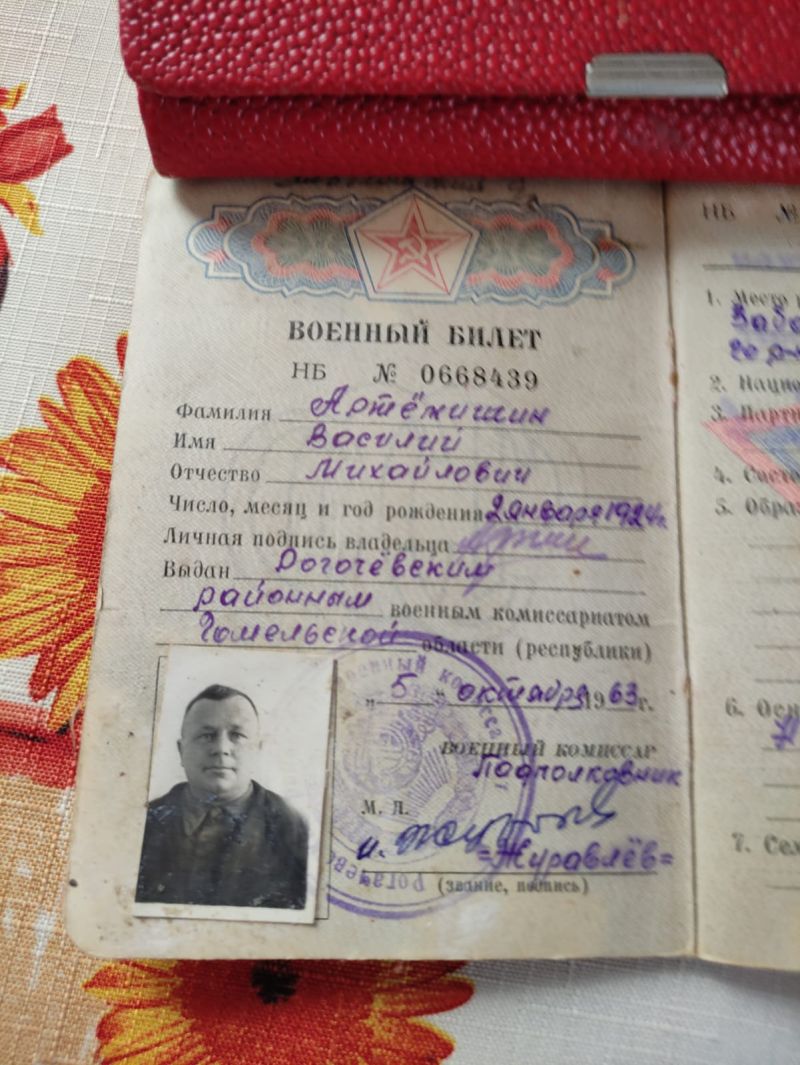 ВОЕННЫЙ БИЛЕТ
НБ № 0668439
Фамилия Артёмишин
Имя Василий
Отчество Михайлович
Число, месяц и год рождения 2 января 1924 г.
Личная подпись владельца
Выдан Рогочёвским
районным военным комиссариатом
Гомельской области (республики)
"5" октября 1963 г.
ВОЕННЫЙ КОМИССАР
Подполковник
М. П.
=Журавлёв=
(звание, подпись)
НБ №
1. Место
2. Нацио
3. Парти
4. Состо
5. Обра
6. Осн
7. Сем